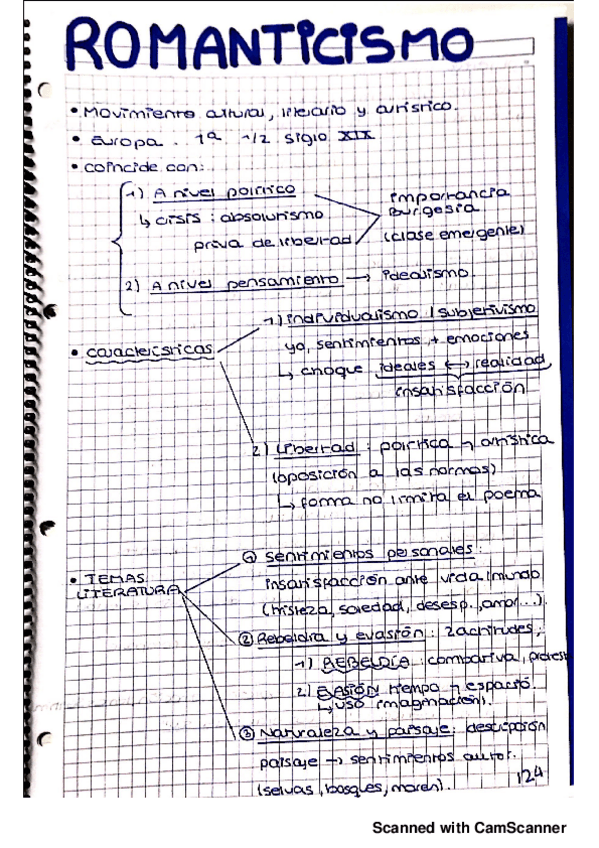 ROMANTICISMO
• Movimiento cultural, literario y artístico.
• Europa .. 1ª 1/2 siglo XIX
• coincide con:
1) A nivel político
↳ crisis: absolutismo
priva de libertad
importancia
Burgesía
(clase emergente)
2) A nivel pensamiento → idealismo.
• características
1) individualismo / subjetivismo
yo, sentimientos + emociones
↳ choque ideales ↔ realidad
insatisfacción
2) Libertad: política y artística
(oposición a las normas)
↳ forma no limita el poema
• TEMAS
LITERATURA
① Sentimientos personales:
insatisfacción ante vida/mundo
(tristeza, soledad, desesp., amor...).
② Rebeldía y evasión: 2 actitudes;
1) REBELDÍA: combativa, protest
2) EVASIÓN tiempo y espacio.
↳ uso imaginación).
③ Naturaleza y paisaje: descripción
paisaje → sentimientos autor.
(selvas, bosques, mares).
124
Scanned with CamScanner